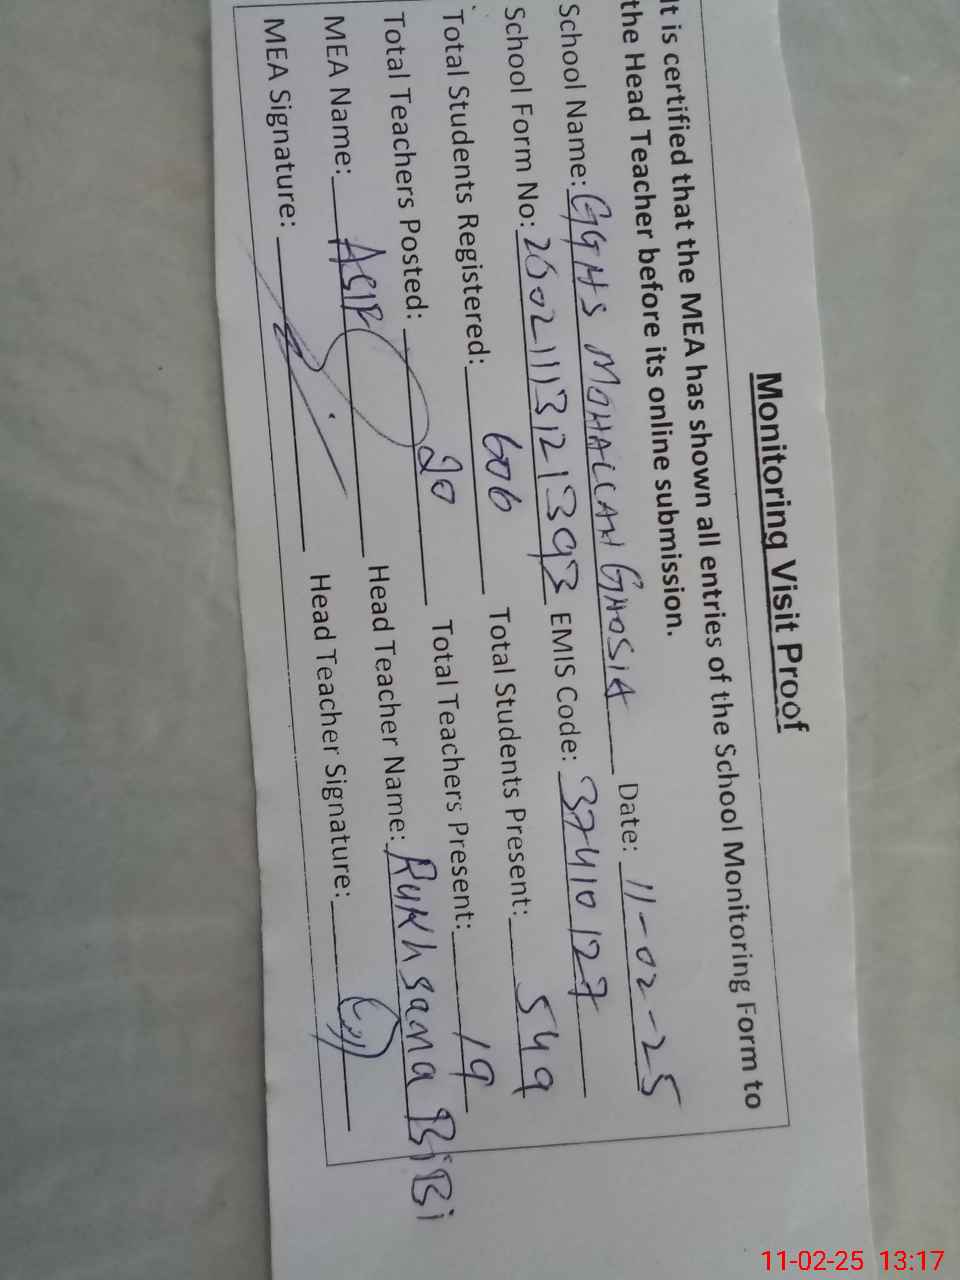 Monitoring Visit Proof
It is certified that the MEA has shown all entries of the School Monitoring Form to
the Head Teacher before its online submission.
School Name: GGHS MOHALLAH GHOSIA Date: 11-02-25
School Form No: 26021113121393 EMIS Code: 37410127
Total Students Registered: 606 Total Students Present: 549
Total Teachers Posted: 20 Total Teachers Present: 19
MEA Name: ASIF Head Teacher Name: Rukhsana BiBi
MEA Signature: Head Teacher Signature:
11-02-25 13:17